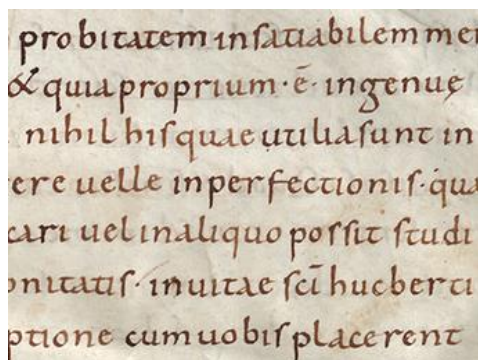 probitatem insatiabilem me
& quia proprium · ē · ingenuę
nihil his quae utilia sunt in
ere uelle inperfectionis · qua
cari uel in aliquo possit studi
onitatis · in uitae scī hucberti
ptione cum uobis placerent